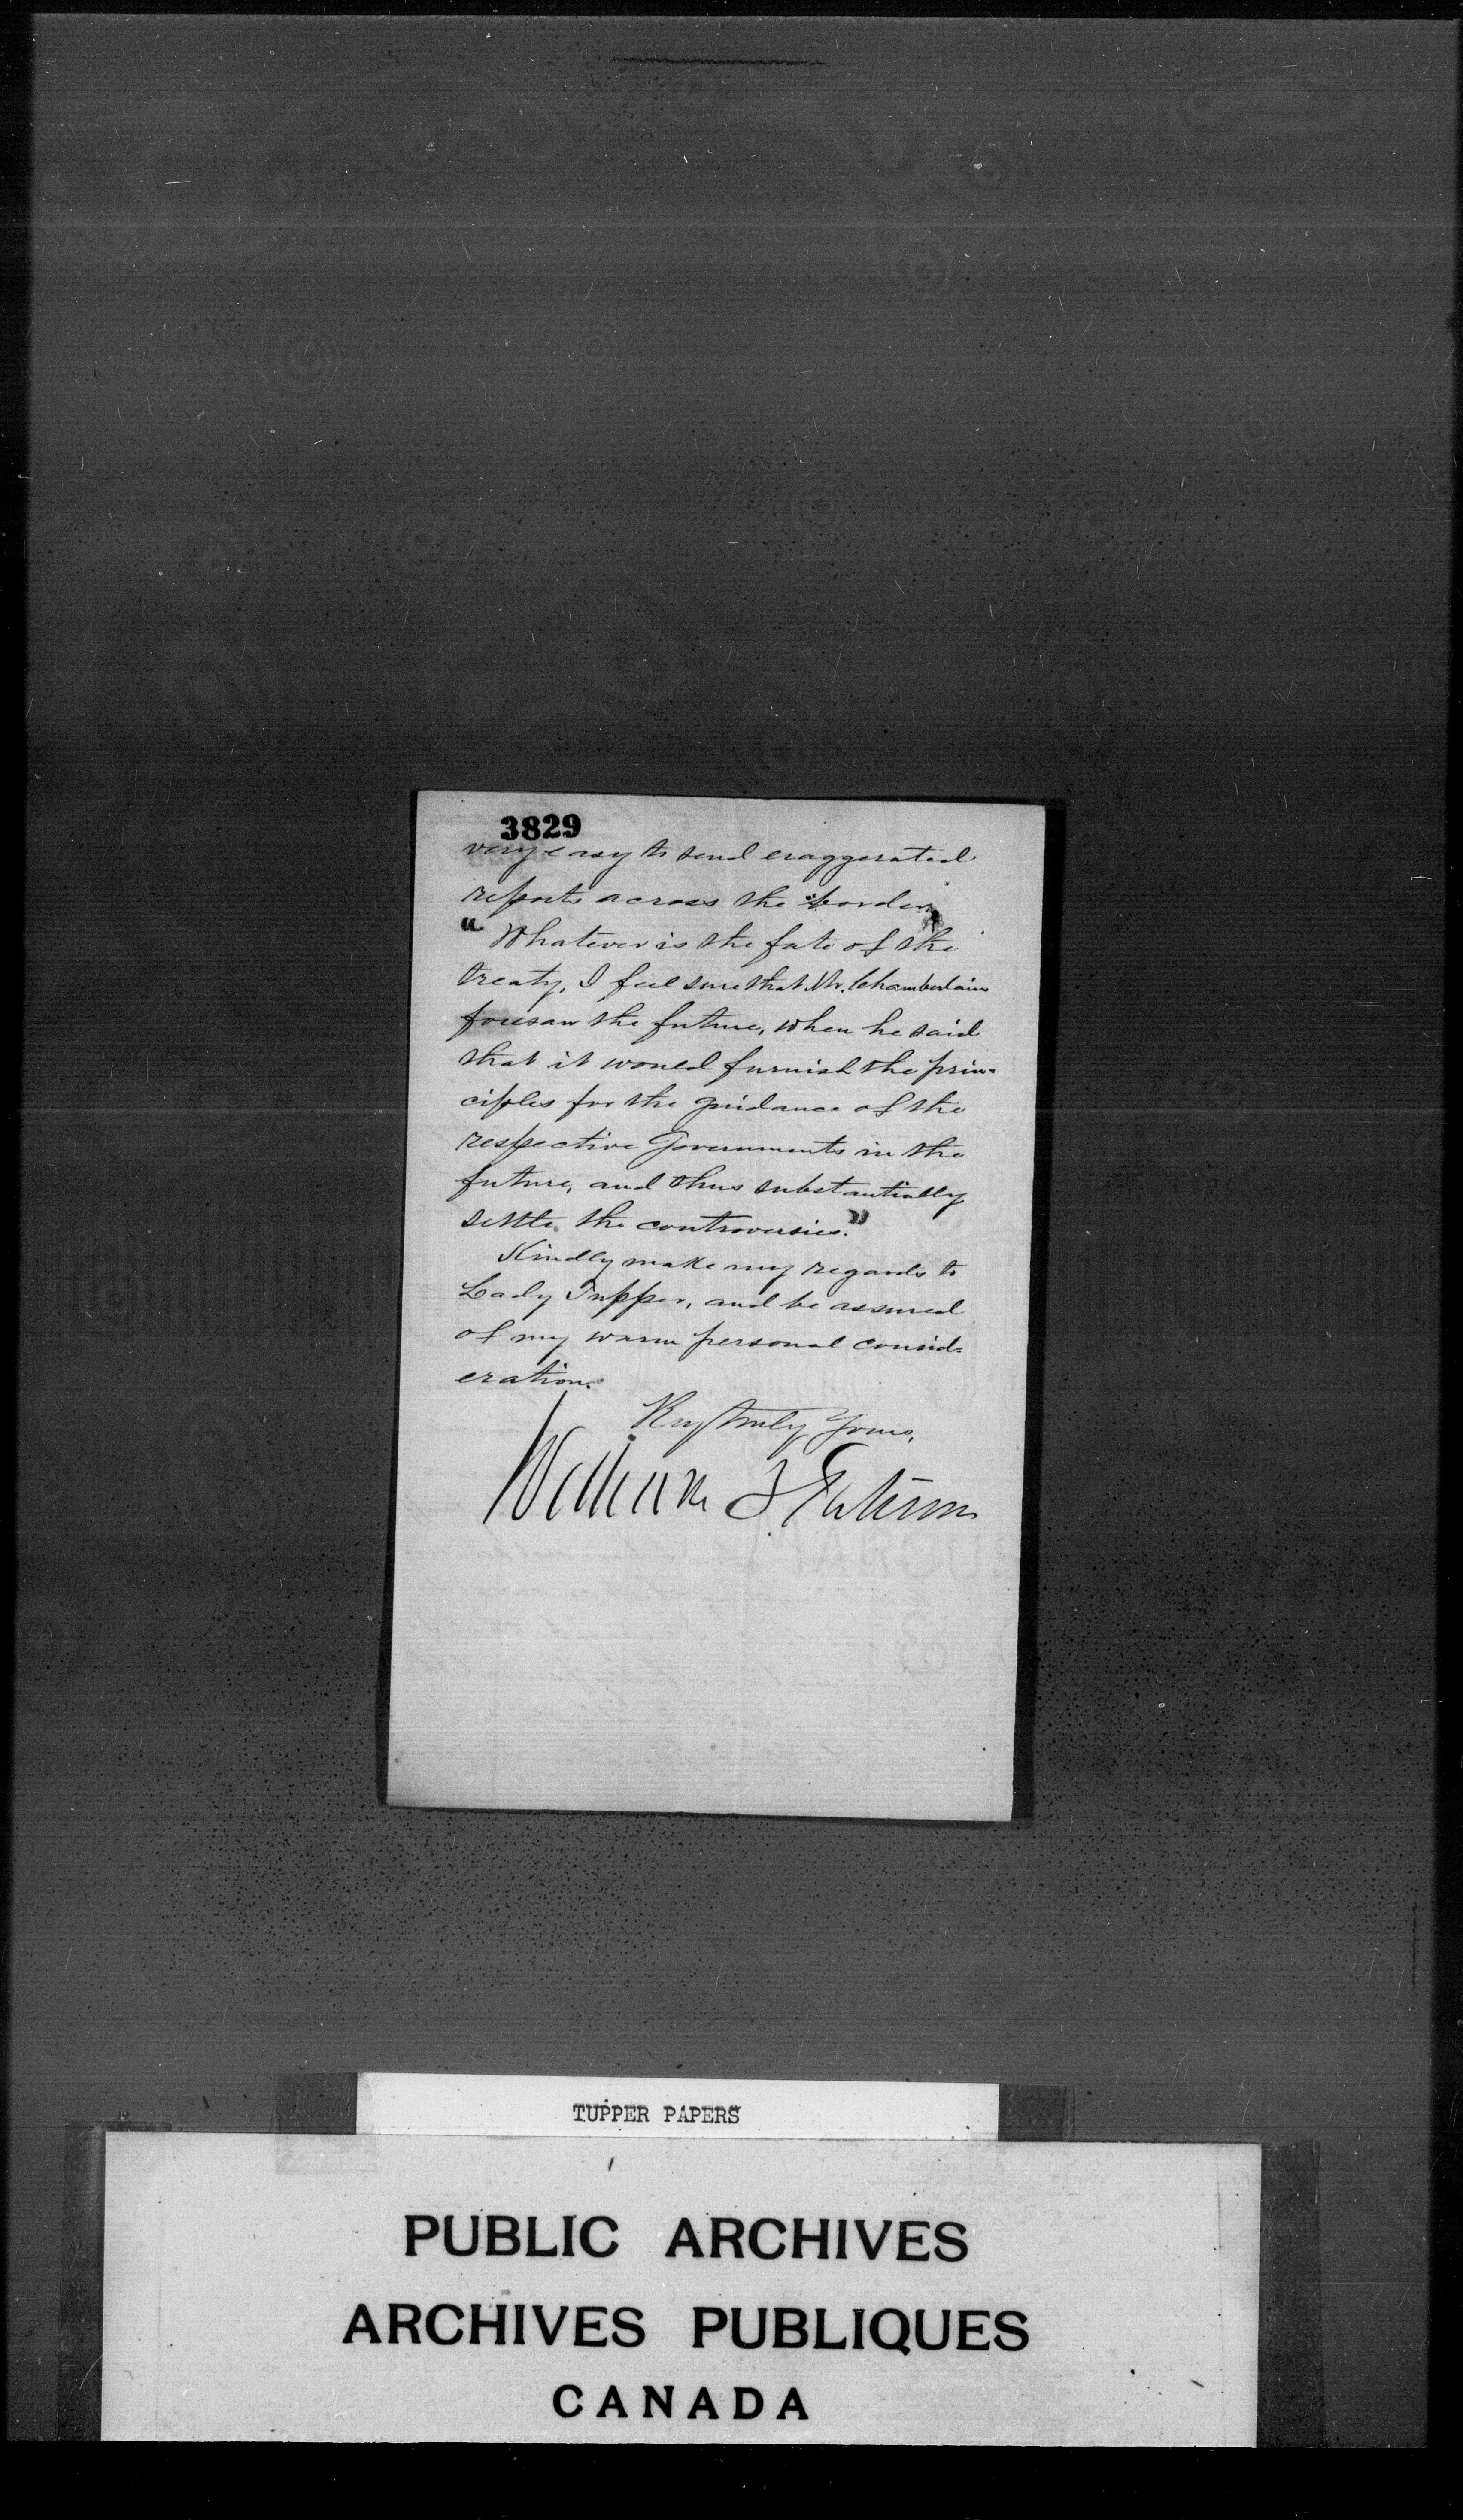 3829
very easy to send exaggerated
reports across the border.
"Whatever is the fate of the
treaty, I feel sure that Mr. Chamberlain
foresaw the future, when he said
that it would furnish the prin-
ciples for the guidance of the
respective Governments in the
future, and thus substantially
settle the controversies."
Kindly make my regards to
Lady Tupper, and be assured
of my warm personal consid-
eration.
Very truly Yours,
William L Putnam
TUPPER PAPERS
PUBLIC ARCHIVES
ARCHIVES PUBLIQUES
CANADA